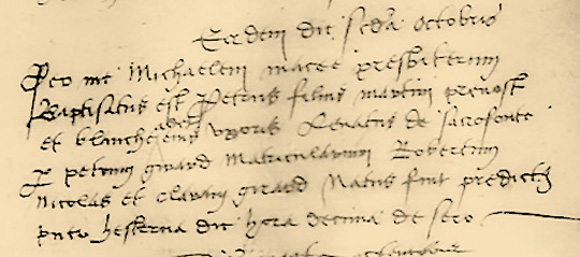 Eadem die secda octobris
Per me Michaelem mace presbiterum
Baptisatus est Petrus filius martini prevost
et blanche eius uxoris Levatus de sacrofonte
P petrum girard Matricularium Robertum
Nicolas et claram girard Natus fuit predict
hesterna die hora decima de sero